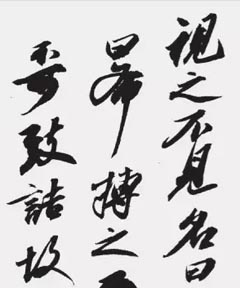 視之不見名曰
曰希搏之
不可致詰故